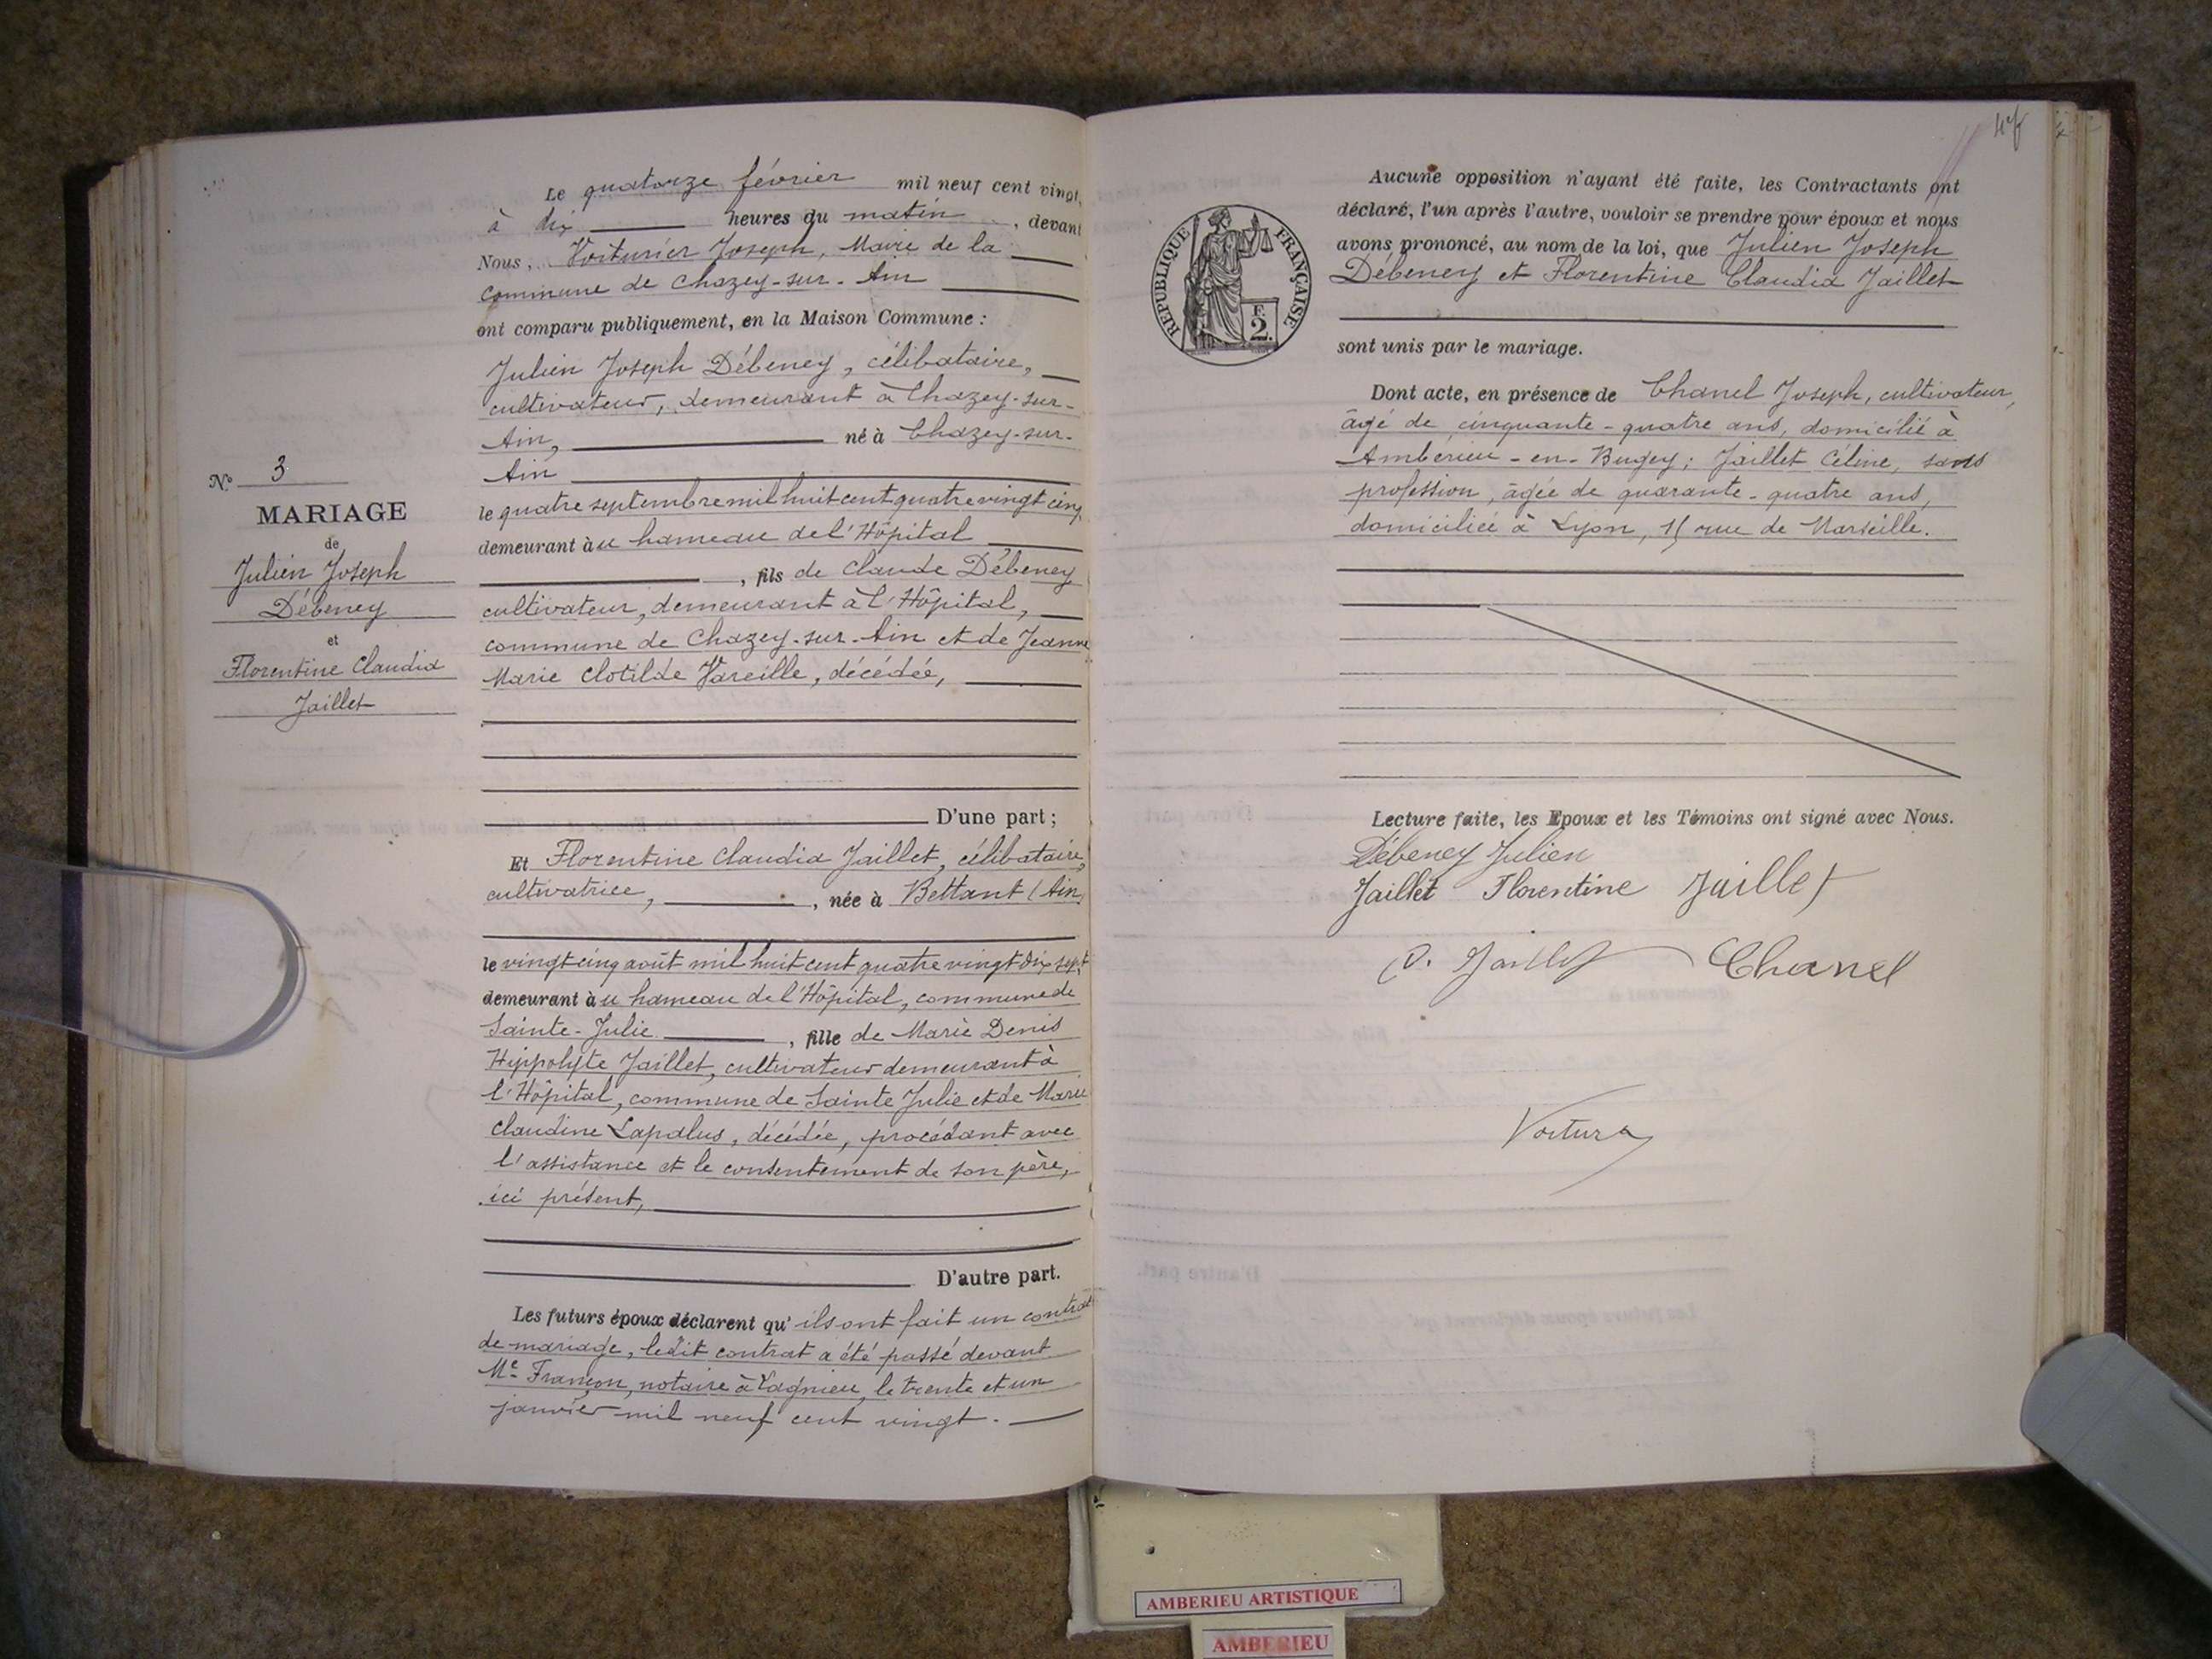 N° 3
MARIAGE
de
Julien Joseph
Débeney
et
Florentine Claudia
Jaillet
Le quatorze février mil neuf cent vingt,
à dix heures du matin, devant
Nous, Voiturier Joseph, Maire de la
commune de Chazey-sur-Ain
ont comparu publiquement, en la Maison Commune :
Julien Joseph Débeney, célibataire,
cultivateur, demeurant à Chazey-sur-
Ain, né à Chazey-sur-
Ain
le quatre septembre mil huit cent quatre vingt cinq
demeurant au hameau de l'Hôpital
, fils de Claude Débeney
cultivateur, demeurant à l'Hôpital,
commune de Chazey-sur-Ain et de Jeanne
Marie Clotilde Vareille, décédée,
D'une part ;
Et Florentine Claudia Jaillet, célibataire,
cultivatrice, , née à Bettant (Ain)
le vingt cinq août mil huit cent quatre vingt dix sept
demeurant au hameau de l'Hôpital, commune de
Sainte-Julie , fille de Marie Denis
Hippolyte Jaillet, cultivateur demeurant à
l'Hôpital, commune de Sainte Julie et de Marie
Claudine Lapalus, décédée, procédant avec
l'assistance et le consentement de son père,
ici présent,
D'autre part.
Les futurs époux déclarent qu'ils ont fait un contrat
de mariage, ledit contrat a été passé devant
Me Françon, notaire à Lagnieu, le trente et un
janvier mil neuf cent vingt.
RÉPUBLIQUE FRANÇAISE
F.
2.
Aucune opposition n'ayant été faite, les Contractants ont
déclaré, l'un après l'autre, vouloir se prendre pour époux et nous
avons prononcé, au nom de la loi, que Julien Joseph
Débeney et Florentine Claudia Jaillet
sont unis par le mariage.
Dont acte, en présence de Chanel Joseph, cultivateur,
âgé de cinquante-quatre ans, domicilié à
Ambérieu-en-Bugey ; Jaillet Céline, sans
profession, âgée de quarante-quatre ans,
domiciliée à Lyon, rue de Marseille.
Lecture faite, les Epoux et les Témoins ont signé avec Nous.
Débeney Julien
Jaillet Florentine Jaillet
Jaillet Chanel
AMBERIEU ARTISTIQUE
AMBERIEU